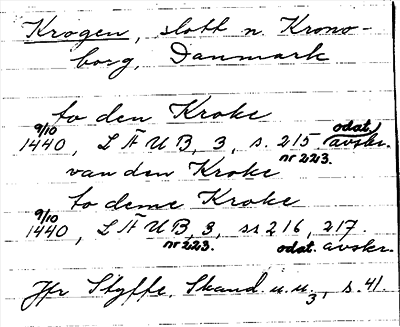 Krogen, slott n. Krono-
borg, Danmark
to den Kroke
9/10 odat.
1440, LÄUB, 3, s. 215 avskr.
nr 223.
van den Kroke
to deme Kroke
9/10
1440, LÄUB, 3, ss 216, 217.
nr 223. odat. avskr.
Jfr Styffe, Skand. u. u. 3, s. 41.